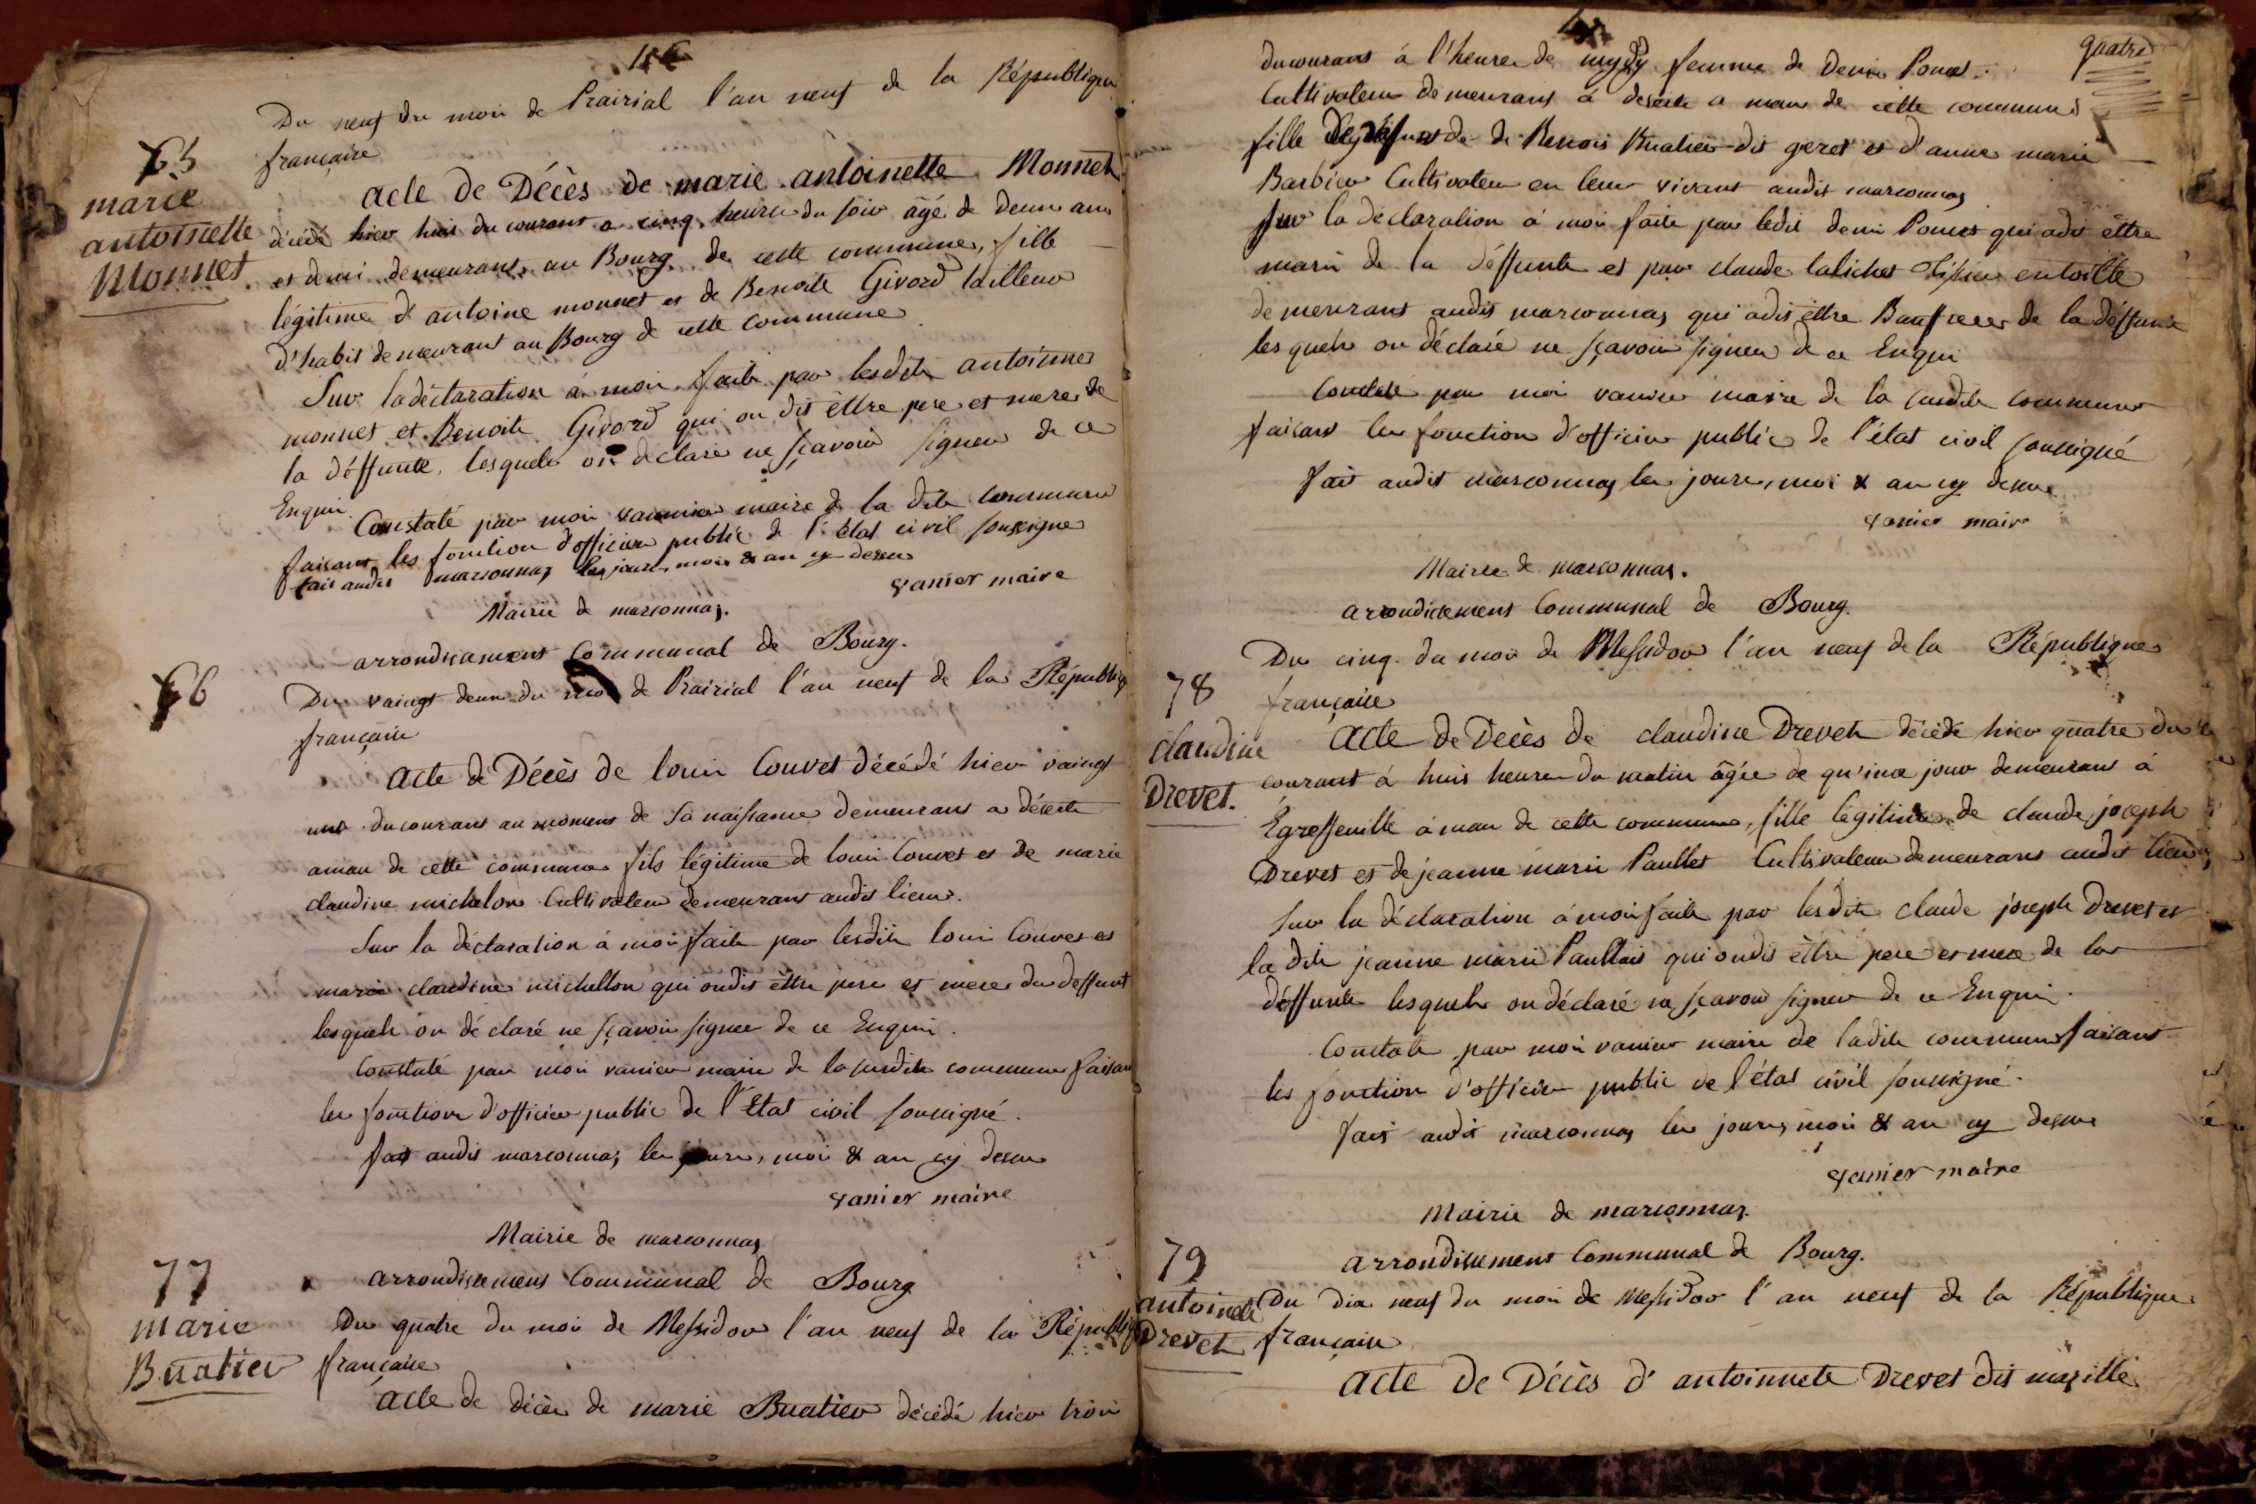 Du neuf du moi de Prairial l'an neuf de la République
française
65
marie
antoinette
Monnet
acte de Décès de marie antoinette Monnet
décédé hier huit du courant a cinq heure du soir âgé de deux ans
et demi demeurant au Bourg de cette commune, fille
légitime d'antoine monnet et de Benoite Givord tailleur
d'habit demeurant au Bourg de cette commune
Sur la déclaration a moi faite par lesdits antoine
monnet et Benoite Givord qui on dit êttre pere et mere de
la déffunte, lesquels on déclaré ne sçavoir signer de ce
Enquis
Constaté par moi vannier maire de la dite commune
faisant les fonction d'officier public de l'état civil soussigné
fait audit marsonnas les jour, mois & an cy dessu
vanier maire
Mairie de marsonnas.
arrondisament Communal de Bourg.
66
Du vaingt deux du moi de Prairial l'an neuf de la Républiq
française
acte de Décès de louis Couvet décédé hier vaingt
un du courant au moment de sa naissance demeurant a
a man de cette commune fils légitime de louis Couvet et de marie
claudine michelon Cultivateur demeurant audit lieux.
Sur la déclaration á moi faite par lesdits louis Couvet et
marie claudine michellon qui ondit êttre pere et mere du deffunt
lesquels on déclaré ne sçavoir signer de ce Enquis.
Constaté par moi vanier maire de la susdite commune faisan
les fonction d'officier public de l'État civil soussigné.
fait audit marsonnas les jours, moi & an cy dessu
vanier maire
Mairie de marsonnas
arrondisement Communal de Bourg
77
marie
Buatier
Du quatre du moi de Messidor l'an neuf de la Républiq
française
acte de décès de marie Buatier décédé hier trois
quatre
du courant á l'heure de mydy femme de denis
Cultivateur demeurant á a man de cette commune
fille de de Benois Buatier dit geret et d'anne marie
Barbier Cultivateur en leur vivant audit marsonnas
sur la déclaration á moi faite par ledit denis qui adit êttre
mari de la déffunte et par claude en toille
demeurant audit marsonnas qui adit êttre de la déffunte
lesquels on déclaré ne sçavoir signer de ce Enquis
Constaté par moi vanier maire de la susdite commune
faisant les fonction d'officier public de l'état civil soussigné
fait audit marsonnas les jours, moi & an cy dessu
vanier maire
Mairie de marsonnas.
arrondisement Communal de Bourg.
Du cinq du moi de Messidor l'an neuf de la République
78
française
claudine
Drevet.
acte de Décès de claudine Drevet décédé hier quatre du
courant á huit heure du matin âgée de qu'inze jour demeurant á
Egreffeuille á man de cette commune, fille légitime de claude joseph
Drevet et de jeanne marie Paullet Cultivateur demeurant audit lieux
sur la déclaration á moi faite par lesdits claude joseph Drevet et
la dite jeanne marie qui ondit êttre pere et mere de la
déffunte lesquels on déclaré ne sçavoir signer de ce Enquis.
Constaté par moi vanier maire de la dite commune faisant
les fonction d'officier public de l'état civil soussigné.
fait audit marsonnas les jours, moi & an cy dessu
vanier maire
Mairie de marsonnas
arrondisement Communal de Bourg.
79
antoinette
Drevet
Du dix neuf du moi de Messidor l'an neuf de la République
française
acte de Décès d'antoinnete Drevet dit